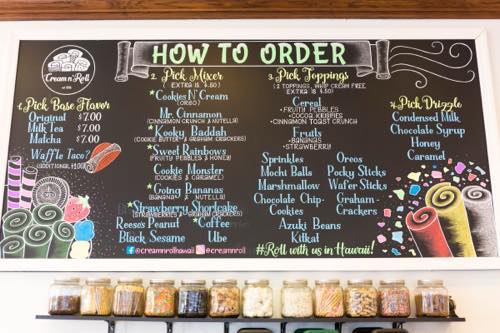 HOW TO ORDER
Cream n' Roll
1. Pick Base Flavor
Original $7.00
Milk Tea $7.00
Matcha $7.00
Waffle Taco?
2. Pick Mixer
(EXTRA IS 4.50)
*Cookies N' Cream
(OREO)
Mr. Cinnamon
(CINNAMON CRUNCH & NUTELLA)
*Kooky Baddah
(COOKIE BUTTER & GRAHAM CRACKERS)
*Sweet Rainbows
(FRUITY PEBBLES & HONEY)
Cookie Monster
(COOKIES & CARAMEL)
*Going Bananas
(BANANA & NUTELLA)
*Strawberry Shortcake
(STRAWBERRIES & GRAHAM CRACKERS)
Reese's Peanut *Coffee
Black Sesame Ube
@creamnrollhawaii @creamnroll
3. Pick Toppings
(2 TOPPINGS, WHIP CREAM FREE
EXTRA IS .50)
Cereal
•FRUITY PEBBLES
•COCOA KRISPIES
•CINNAMON TOAST CRUNCH
Fruits
•BANANAS
•STRAWBERRY
Sprinkles Oreos
Mochi Balls Pocky Sticks
Marshmallow Wafer Sticks
Chocolate Chip- Graham-
Cookies Crackers
Azuki Beans
Kitkat
#Roll with us in Hawaii!
4. Pick Drizzle
Condensed Milk
Chocolate Syrup
Honey
Caramel